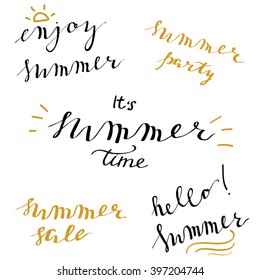 enjoy
summer
summer
party
It's
summer
time
summer
sale
hello!
summer
www.shutterstock.com · 397204744